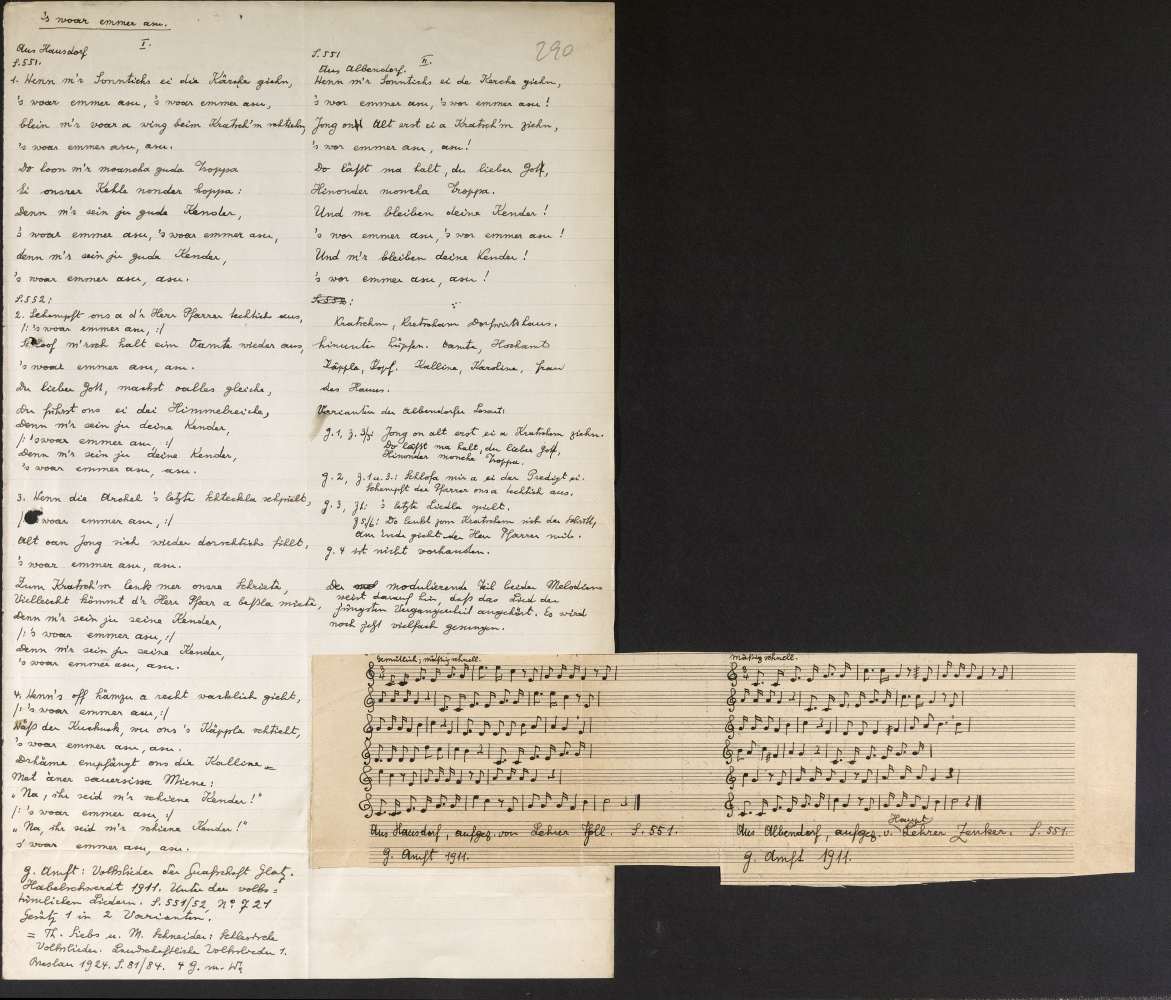 's woar emmer asu.
290
I.
Aus Hausdorf
S. 551.
1. Wenn m'r Sonntichs ei die Kärche giehn,
's woar emmer asu, 's woar emmer asu,
blein m'r voar a wing beim Kratsch'm schtiehn,
's woar emmer asu, asu.
Do loon m'r moancha guda Troppa
Ei onsrer Kehle nonder hoppa:
Denn m'r sein ju gude Kender,
's woar emmer asu, 's woar emmer asu,
denn m'r sein ju gude Kender,
's woar emmer asu, asu.
S. 552:
2. Schempft ons a d'r Herr Pfarrer techtich aus,
/: 's woar emmer asu, :/
Schloof m'rsch halt eim Oamte wieder aus,
's woar emmer asu, asu.
Du lieber Gott, machst oalles gleiche,
Du führst ons ei dei Himmelreiche,
Denn m'r sein ju deine Kender,
/: 's woar emmer asu, :/
Denn m'r sein ju deine Kender,
's woar emmer asu, asu.
3. Wenn die Archel 's letzte Schteckla schpielt,
/: 's woar emmer asu, :/
Alt oan Jong sich wieder dorschtich fihlt,
's woar emmer asu, asu.
Zum Kratsch'm lenk mer onsre Schriete,
Vielleicht kömmt d'r Herr Pfarr a beßla miete,
Denn m'r sein ju seine Kender,
/: 's woar emmer asu, :/
Denn m'r sein ju seine Kender,
's woar emmer asu, asu.
4. Wenn's off hämzu a recht varklich gieht,
/: 's woar emmer asu, :/
Wäß der Kuckuck, wu ons 's Käppla schtieht,
's woar emmer asu, asu.
Drhäme empfängt ons die Kalline
Met äner sauersissa Miene:
"Na, ihr seid m'r schiene Kender!"
/: 's woar emmer asu, :/
"Na, ihr seid m'r schiene Kender!"
's woar emmer asu, asu.
G. Amft: Volkslieder der Grafschaft Glatz.
Habelschwerdt 1911. Unter den volks=
tümlichen Liedern. S. 551/52 No 721
Gesätz 1 in 2 Varianten.
= Th. Siebs u. M. Schneider: Schlesische
Volkslieder. Landschaftliche Volkslieder 1.
Breslau 1924. S. 81/84. 4 G. m. W.
S. 551
II.
Aus Albendorf.
Wenn m'r Sonntichs ei de Kerche giehn,
's wor emmer asu, 's wor emmer asu!
Jong on Alt erst ei a Kratsch'm ziehn,
's wor emmer asu, asu!
Do läßt ma halt, du lieber Gott,
Hinonder moncha Troppa.
Und mr bleiben deine Kender!
's wor emmer asu, 's wor emmer asu!
Und m'r bleiben deine Kender!
's wor emmer asu, asu!
S. 552:
Kratschm, Kretscham Dorfwirtshaus.
hinunter hüpfen. Oamte, Hochamt
Käppla, Kopf. Kalline, Karoline, Frau
des Hauses.
Varianten der Albendorfer Lesart:
G. 1, Z. 3/5: Jong on alt erst ei a Kratschm ziehn.
Do läßt ma halt, du lieber Gott,
Hinonder monche Troppa.
G. 2, Z. 1 u. 3.: Schlofa mir a ei der Predigt ei.
Schempft der Pfarrer onsa techtich aus.
G. 3, Z1: 's letzte Liedla spielt.
Z 5/6: Do lenkt zom Kratschem sich der Schritt,
am Ende gieht der Herr Pfarrer mit.
G. 4 ist nicht vorhanden.
Der modulierende Teil beider Melodien
weist darauf hin, daß das Lied der
jüngsten Vergangenheit angehört. Es wird
noch jetzt vielfach gesungen.
Gemütlich; mäßig schnell.
Aus Hausdorf, aufgez. von Lehrer Pöll. S. 551.
G. Amft 1911.
Mäßig schnell.
Aus Albendorf, aufgez. v. Hauptlehrer Zenker. S. 551.
G. Amft 1911.